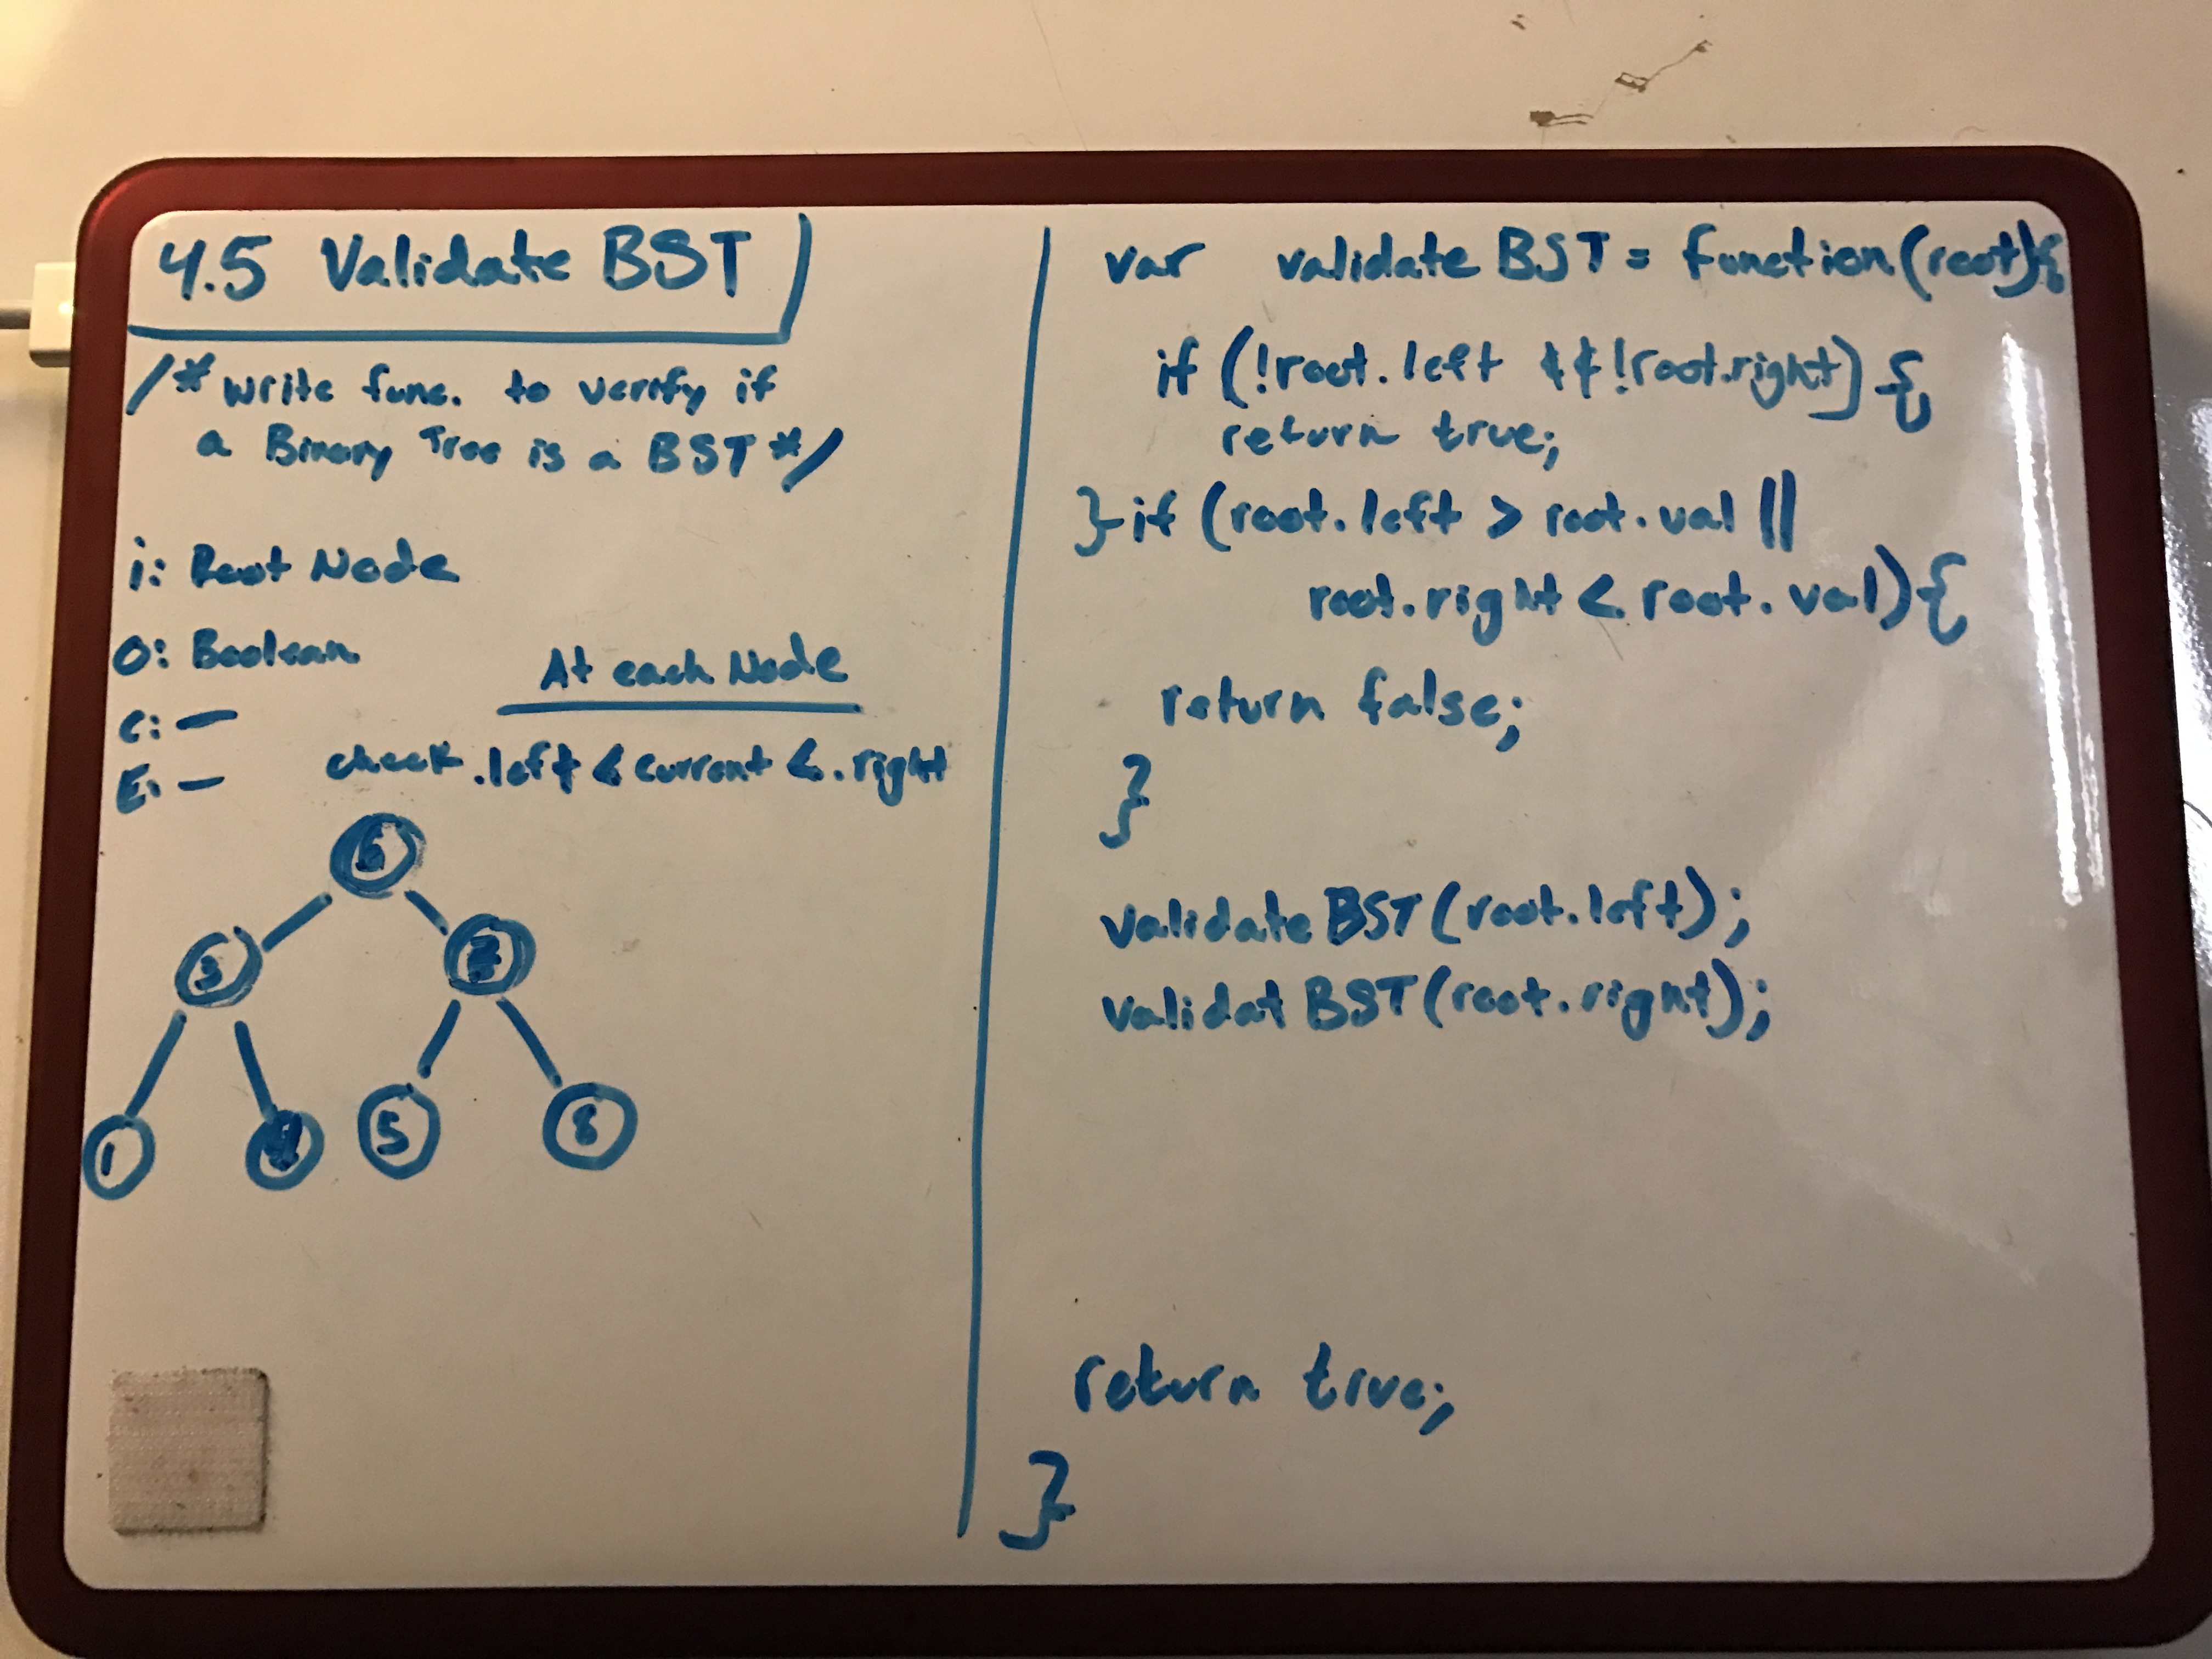 4.5 Validate BST
/* Write func. to verify if
a Binary Tree is a BST */
i: Root Node
O: Boolean
C: —
E: —
At each Node
check .left < current < .right
6
3
7
1
5
8
var validateBST = function(root){
if (!root.left && !root.right) {
return true;
} if (root.left > root.val ||
root.right < root.val) {
return false;
}
validateBST(root.left);
validatBST(root.right);
return true;
}